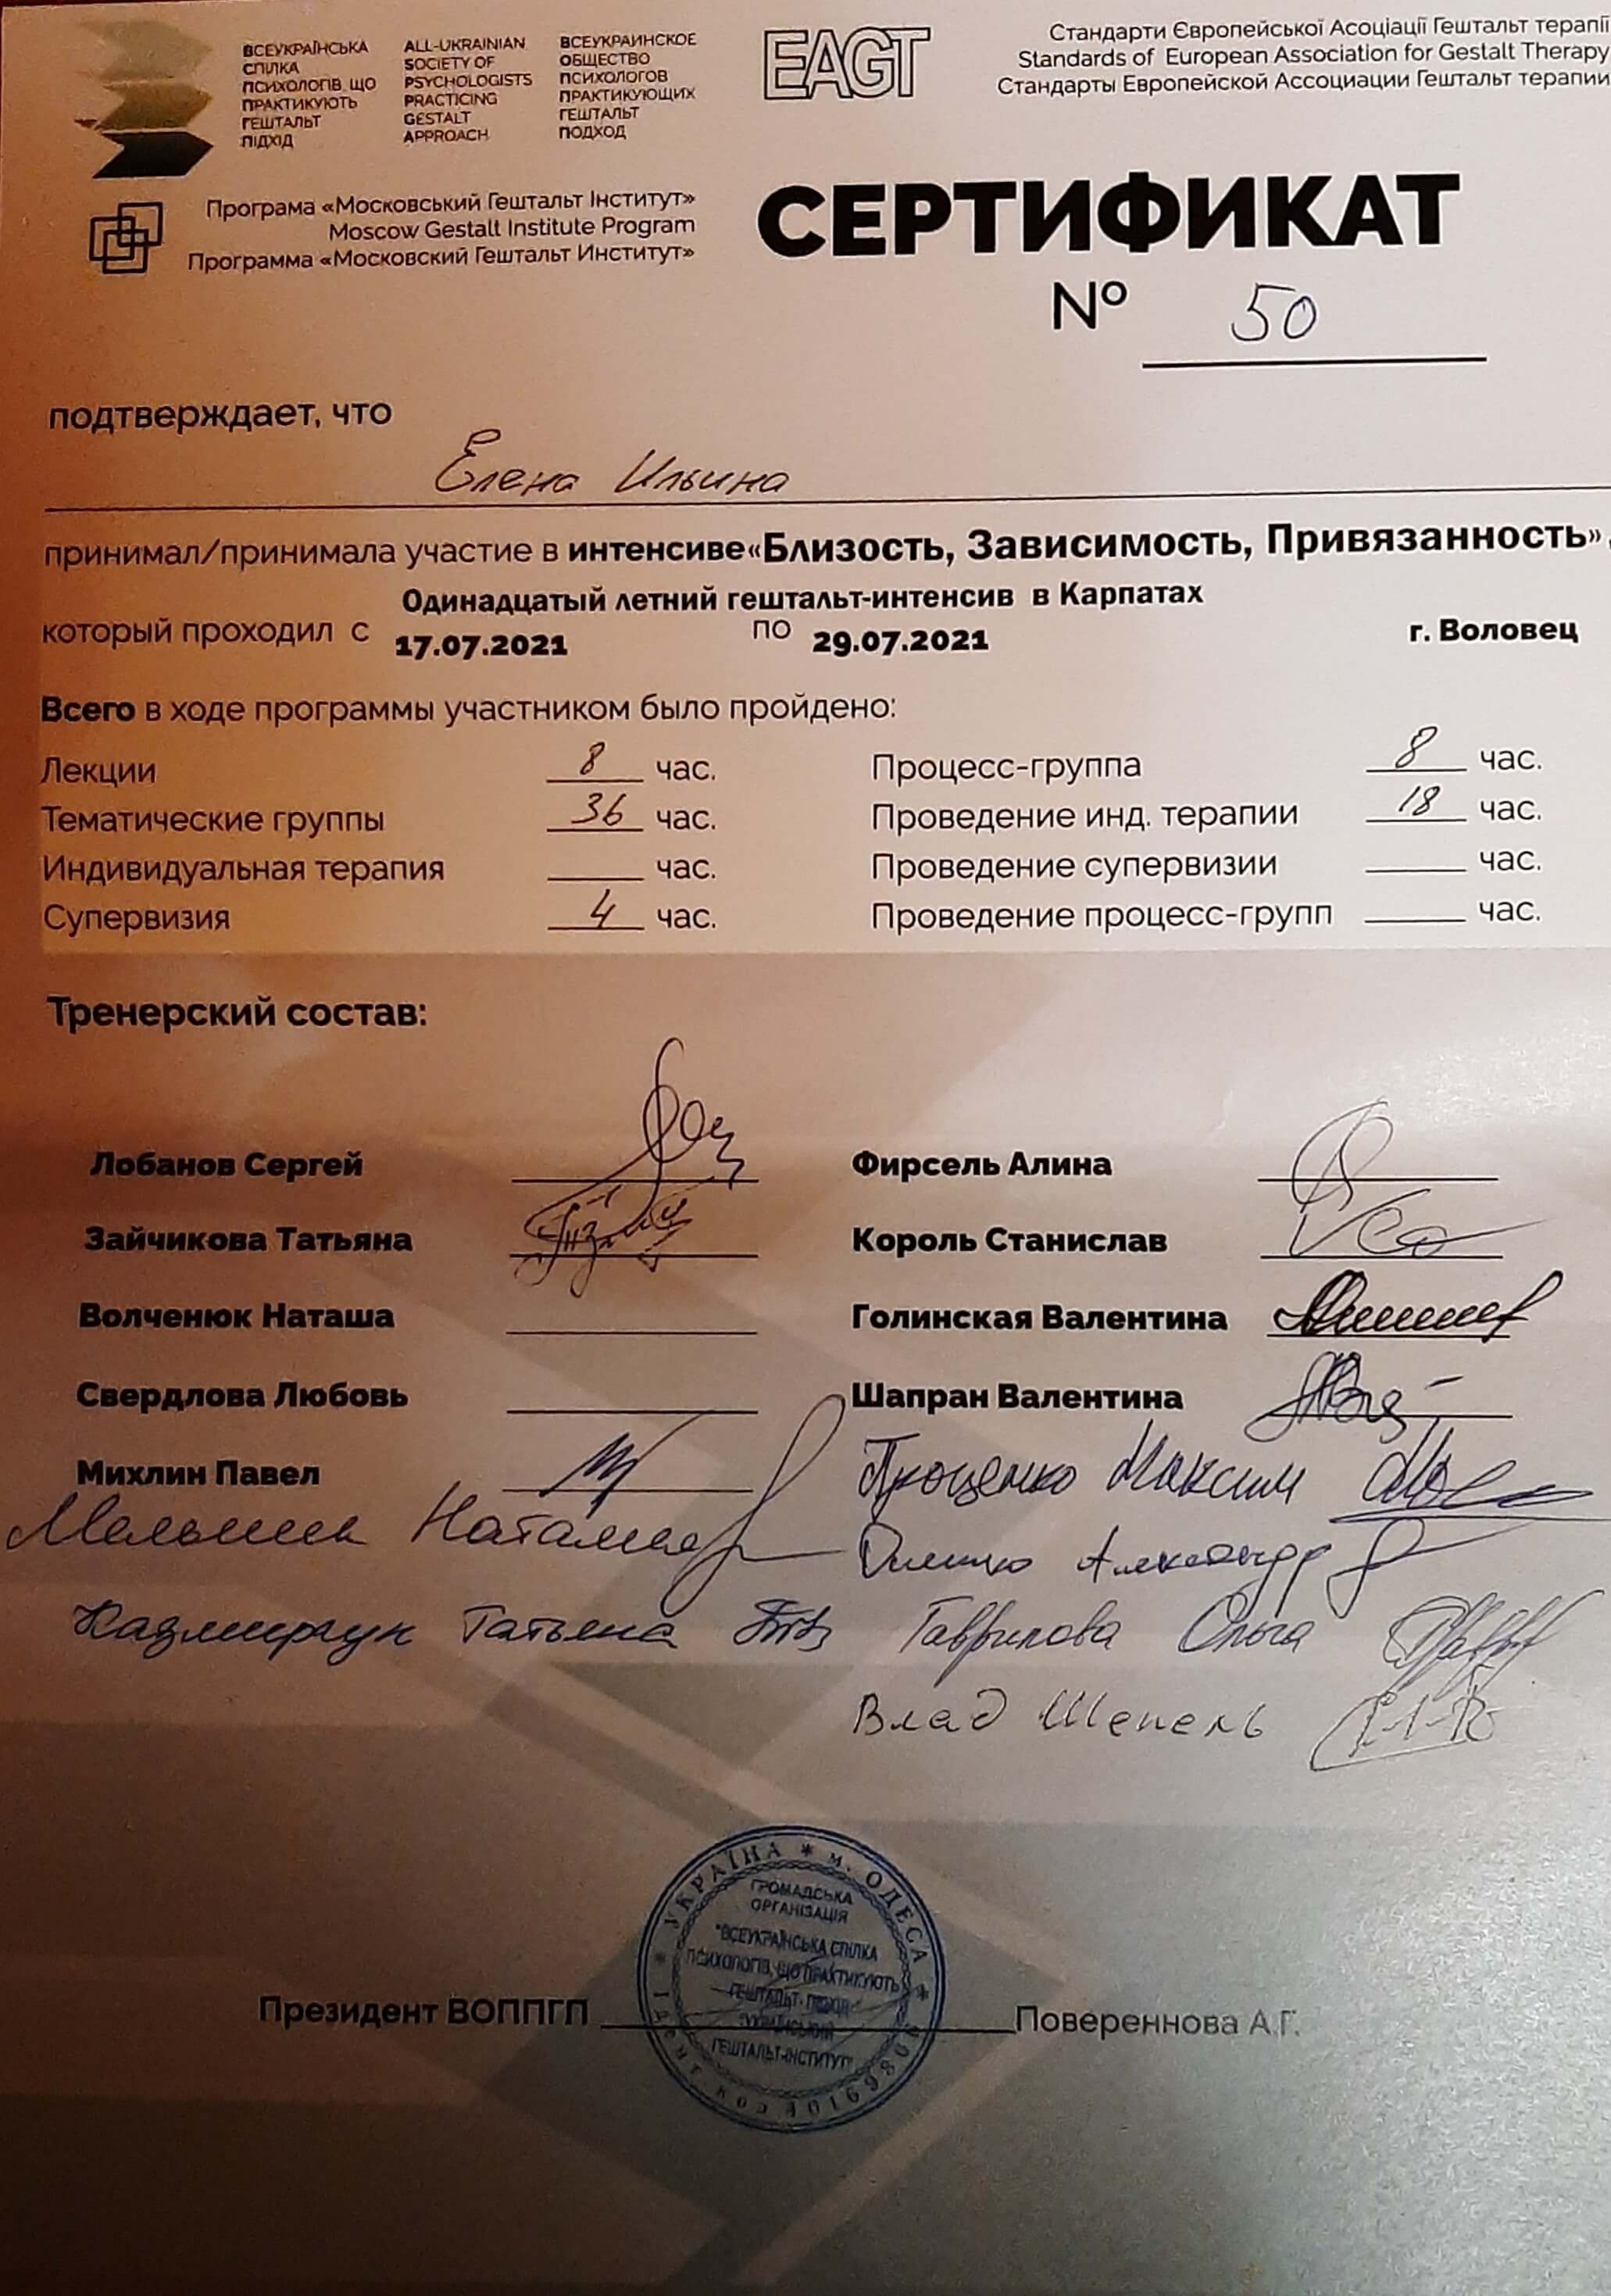 ВСЕУКРАЇНСЬКА
СПІЛКА
ПСИХОЛОГІВ, ЩО
ПРАКТИКУЮТЬ
ГЕШТАЛЬТ
ПІДХІД
ALL-UKRAINIAN
SOCIETY OF
PSYCHOLOGISTS
PRACTICING
GESTALT
APPROACH
ВСЕУКРАИНСКОЕ
ОБЩЕСТВО
ПСИХОЛОГОВ
ПРАКТИКУЮЩИХ
ГЕШТАЛЬТ
ПОДХОД
EAGT
Стандарти Європейської Асоціації Гештальт терапії
Standards of European Association for Gestalt Therapy
Стандарты Европейской Ассоциации Гештальт терапии
Програма «Московський Гештальт Інститут»
Moscow Gestalt Institute Program
Программа «Московский Гештальт Институт»
СЕРТИФИКАТ
№ 50
подтверждает, что
Елена Ильина
принимал/принимала участие в интенсиве «Близость, Зависимость, Привязанность»,
Одинадцатый летний гештальт-интенсив в Карпатах
который проходил с 17.07.2021 по 29.07.2021 г. Воловец
Всего в ходе программы участником было пройдено:
Лекции 8 час. Процесс-группа 8 час.
Тематические группы 36 час. Проведение инд. терапии 18 час.
Индивидуальная терапия час. Проведение супервизии час.
Супервизия 4 час. Проведение процесс-групп час.
Тренерский состав:
Лобанов Сергей Фирсель Алина
Зайчикова Татьяна Король Станислав
Волченюк Наташа Голинская Валентина
Свердлова Любовь Шапран Валентина
Михлин Павел Проценко Максим
Наталия Александр
Татьяна Гаврилова Ольга
Влад Шепель
УКРАЇНА * м. ОДЕСА *
ГРОМАДСЬКА
ОРГАНІЗАЦІЯ
"ВСЕУКРАЇНСЬКА СПІЛКА
ПСИХОЛОГІВ, ЩО ПРАКТИКУЮТЬ
ГЕШТАЛЬТ-ПІДХІД
"УКРАЇНСЬКИЙ
ГЕШТАЛЬТ-ІНСТИТУТ"
Президент ВОППГП Повереннова А.Г.